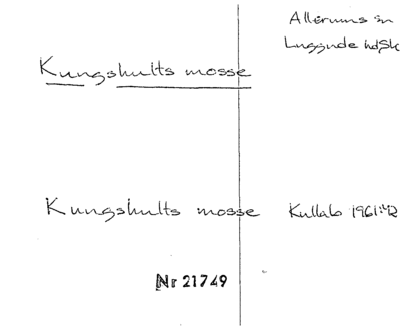 Allerums sn
Luggude hdSk
Kungshults mosse
Kungshults mosse Kullab 1961:42
Nr 21749